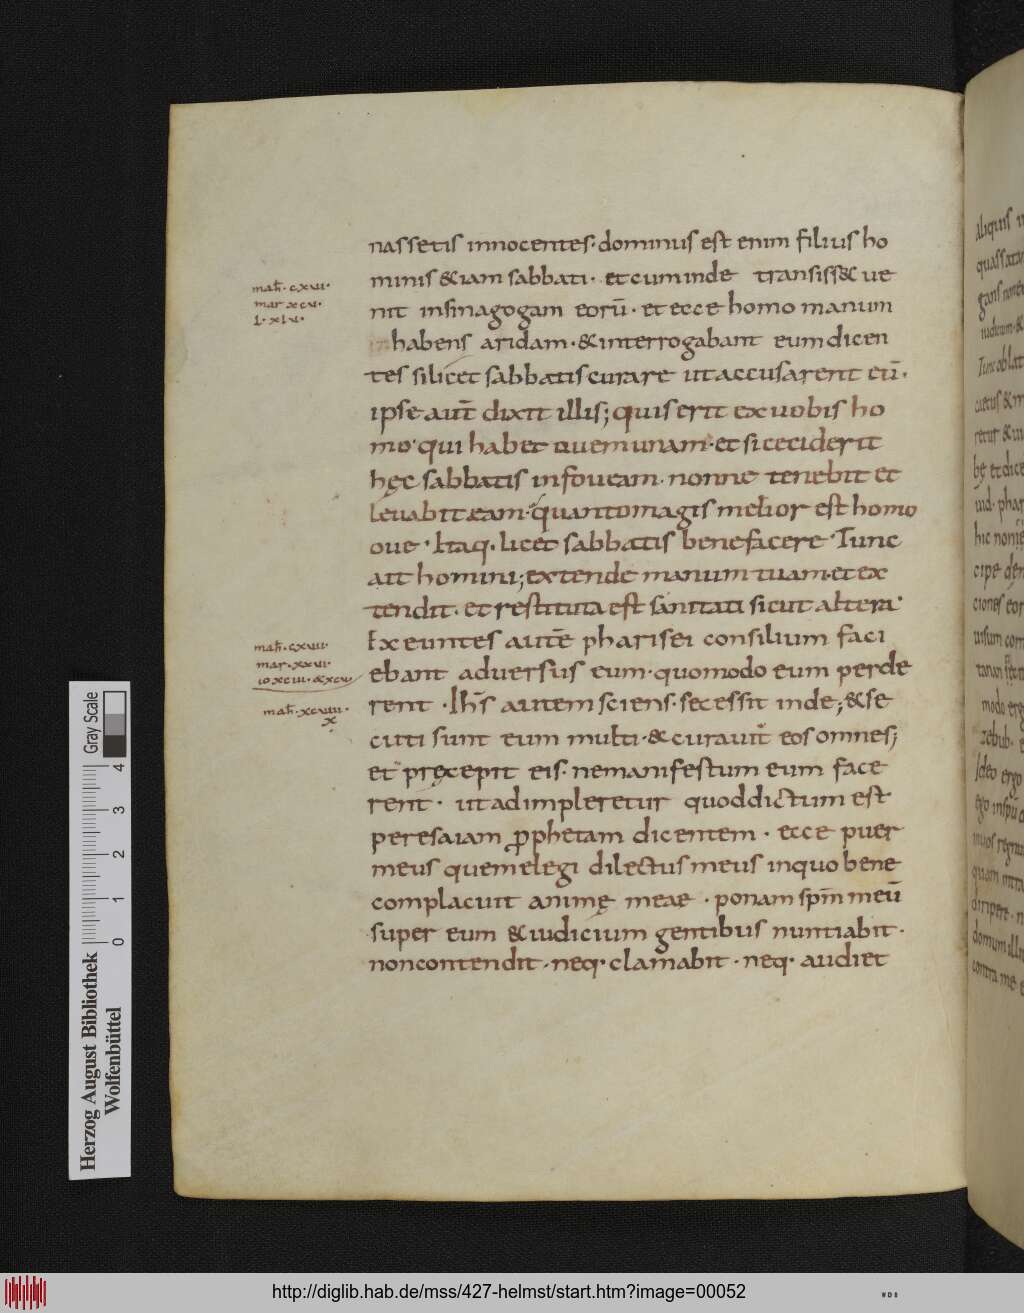 nassetis innocentes· dominus est enim filius ho
minis & iam sabbati · et cum inde transiss& ue
nit insinagogam eorū · et ecce homo manum
habens aridam · & interrogabant eum dicen
tes si licet sabbatis curare ut accusarent eū ·
ipse aut̄ dixit illis; quis erit ex uobis ho
mo· qui habet ouem unam · et si ceciderit
hęc sabbatis in foueam · nonne tenebit et
leuabit eam · quanto magis melior est homo
oue · Itaq· licet sabbatis benefacere · Tunc
ait homini; extende manum tuam· et ex
tendit · et restituta est sanitati sicut altera·
Exeuntes autē pharisei consilium faci
ebant aduersus eum · quomodo eum perde
rent · Ih̄s autem sciens · secessit inde; & se
cuti sunt eum multi · & curauit eos omnes;
et pręcepit eis · ne manifestum eum face
rent · ut adimpleretur quod dictum est
per esaiam ꝓphetam dicentem · ecce puer
meus quem elegi dilectus meus in quo bene
complacuit animę meae · ponam sp̄m meū
super eum & iudicium gentibus nuntiabit ·
non contendit · neq· clamabit · neq· audiet
mat̄ · cxvi ·
mar xcv ·
l · xlv ·
mat̄ · cxvii·
mar · xxvi ·
io xciii · & xcv
mat̄ · xcviii ·
x
aliquis
hic non
cipe
modo erg
zebub ·
Ideo ergo
contra me
Herzog August Bibliothek
Wolfenbüttel
Gray Scale
0 1 2 3 4
http://diglib.hab.de/mss/427-helmst/start.htm?image=00052